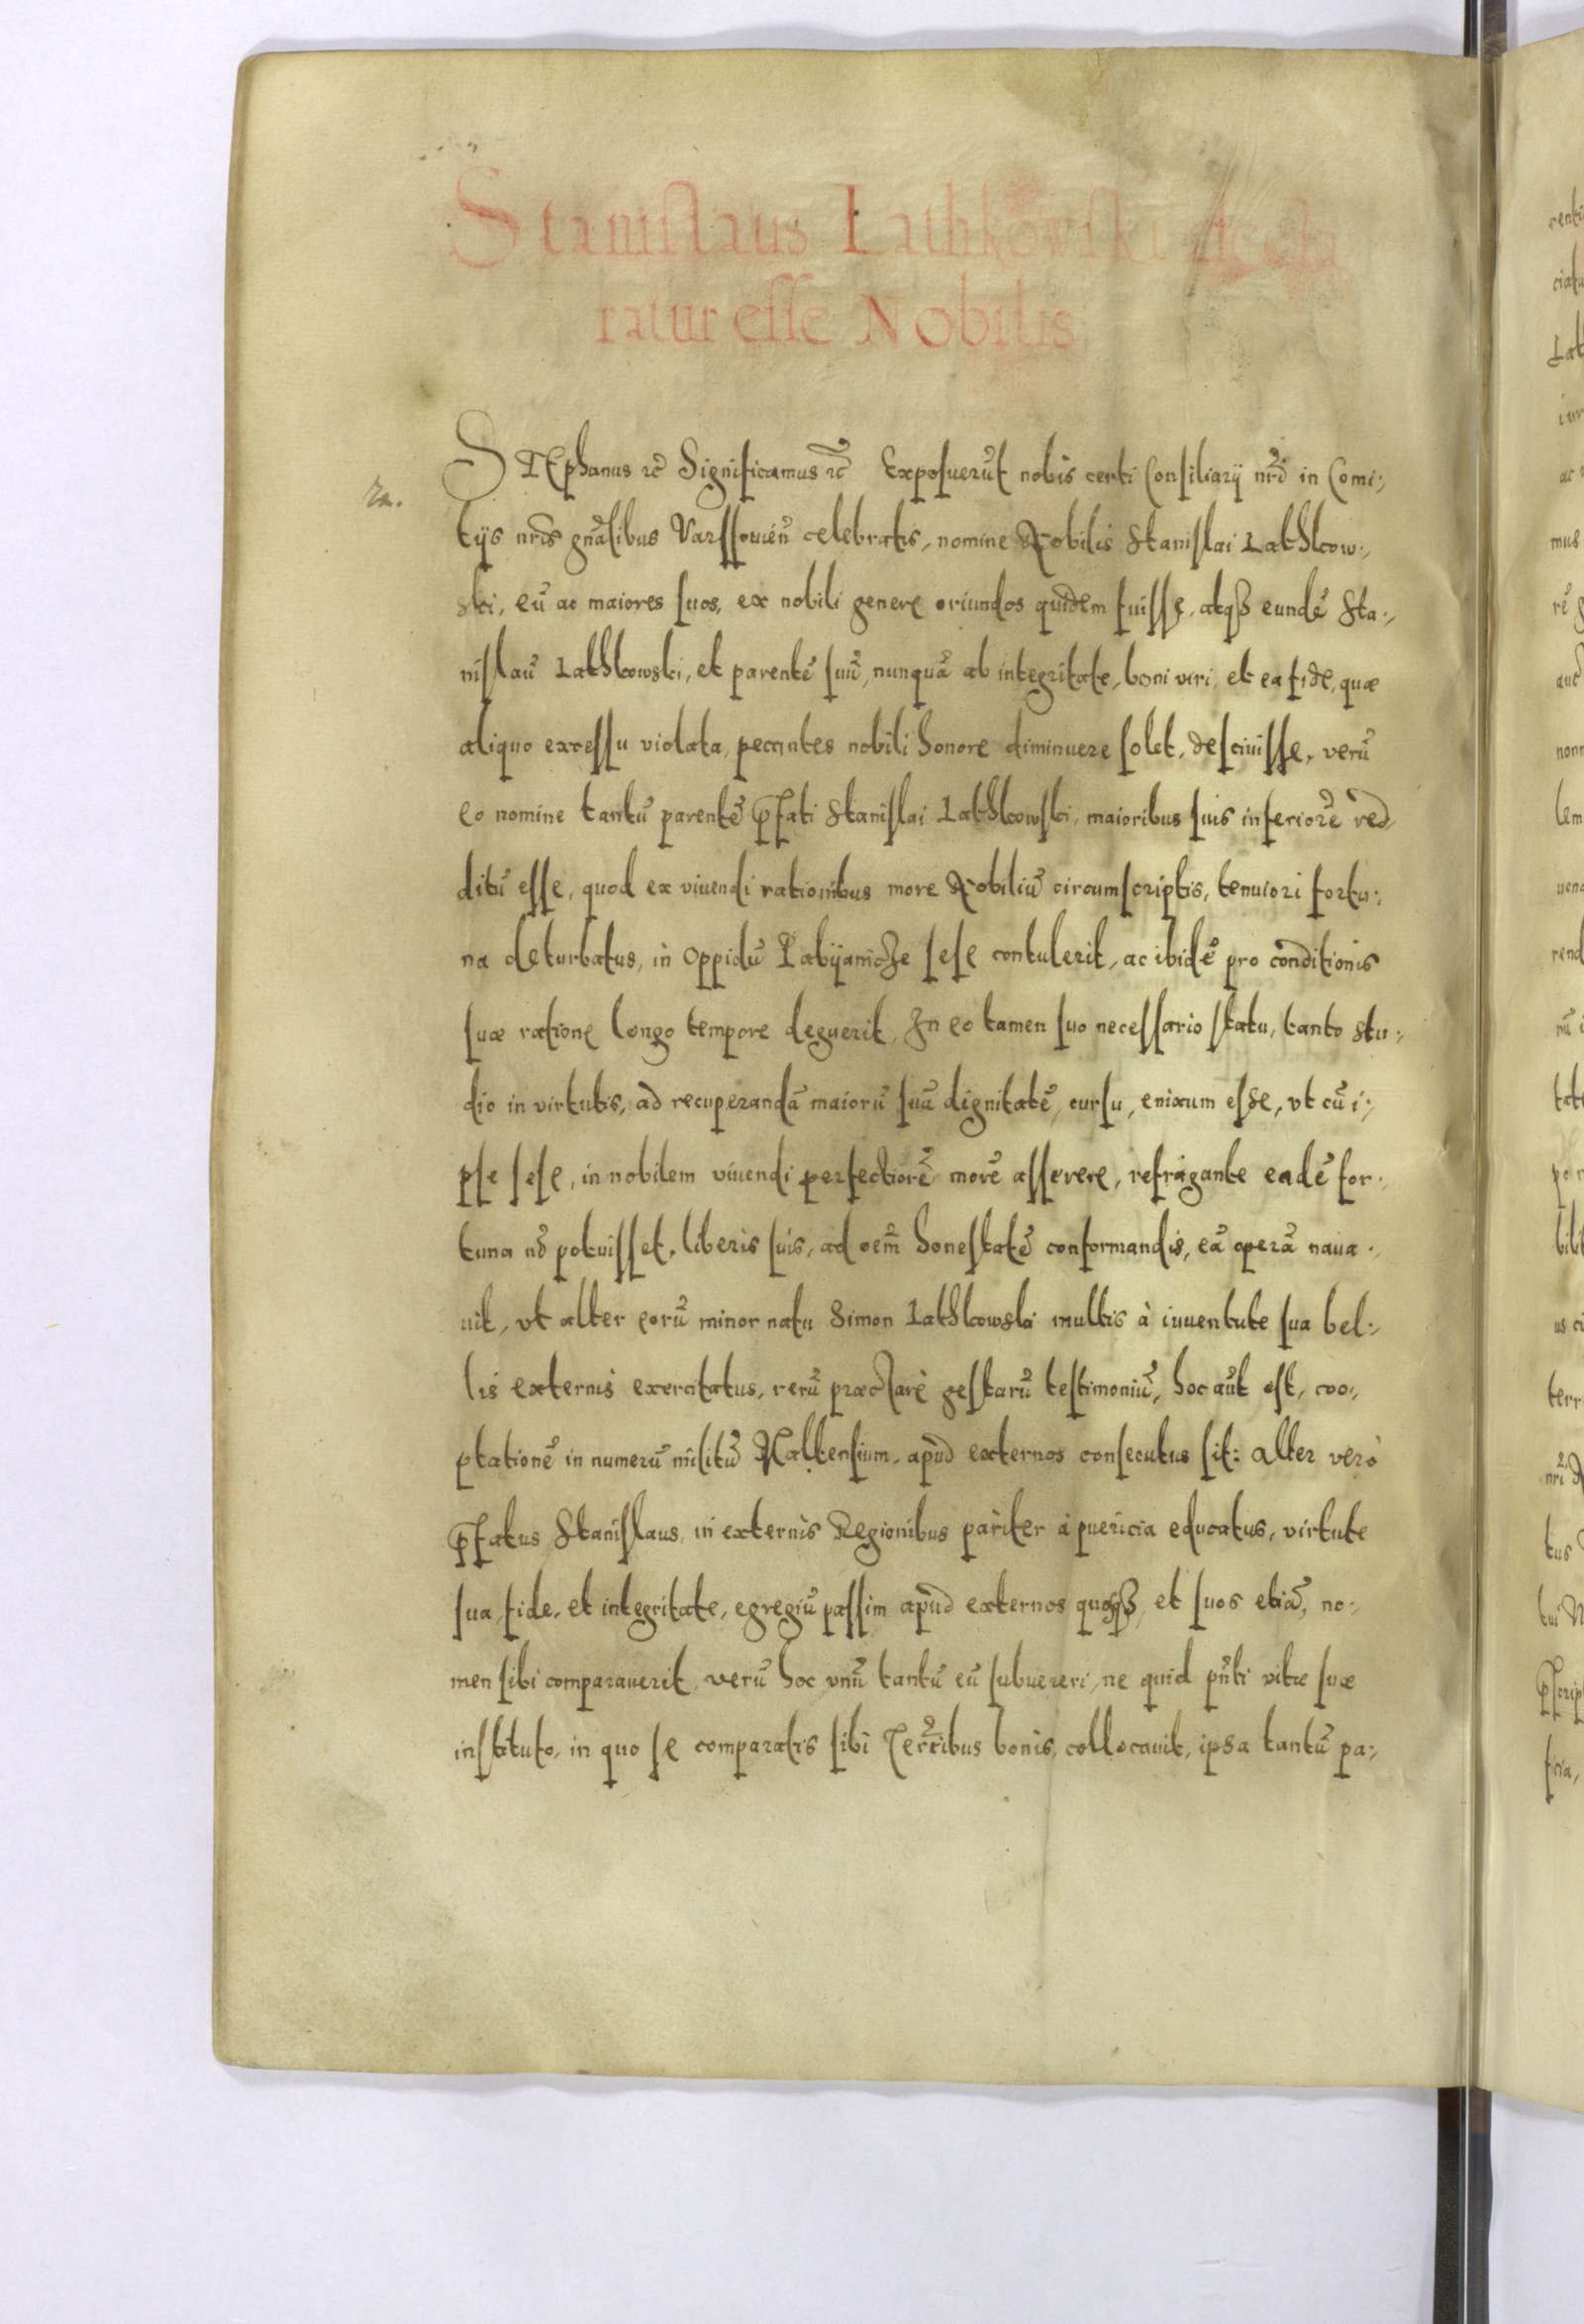 Stanislaus Lathkowski decla
ratur esse Nobilis
STEphanus rc̃ Significamus rc̃ Exposuerũt nobis certi Consiliarij nrĩ in Comi:,
tijs nrĩs gnãlibus Varssouieñ celebratis, nomine Nobilis Stanislai Lathkow:,
ski, eũ ac maiores suos, ex nobili genere oriundos quidem fuisse, atqꝫ eundẽ Sta:,
nislaũ Lathkowski, et parentẽ suũ, nunquã ab integritate, boni viri, et ea fide, quæ
aliquo excessu violata, peccantes nobili honore diminuere solet, desciuisse, verũ
eo nomine tantũ parentẽ p̃fati Stanislai Lathkowski, maioribus suis inferiorẽ red,
ditũ esse, quod ex viuendi rationibus more Nobiliũ circumscriptis, tenuiori fortu:,
na deturbatus, in Oppidũ Pabijanicze sese contulerit, ac ibidẽ pro conditionis
suæ ratione longo tempore deguerit, In eo tamen suo necessario statu, tanto stu:,
dio in virtutis, ad recuperandã maiorũ suã dignitatẽ, cursu, enixum esse, vt cũ i:,
pse sese, in nobilem viuendi perfectiorẽ morẽ asserere, refragante eadẽ for:,
tuna nõ potuisset, liberis suis, ad oem̃ honestatẽ conformandis, eã operã naua:,
uit, vt alter eorũ minor natu Simon Lathkowski multis à iuuentute sua bel:,
lis externis exercitatus, rerũ præclarè gestarũ testimoniũ, hoc aũt est, coo:,
ptationẽ in numerũ militũ Maltensium, apud externos consecutus sit: alter verò
p̃fatus Stanislaus, in externis Regionibus pariter à puericia educatus, virtute
sua, fide, et integritate, egregiũ passim apud externos quosqꝫ, et suos etiã, no:,
men sibi comparauerit, verũ hoc vnũ tantũ eũ subuereri, ne quid pñti vitæ suæ
instituto, in quo se comparatis sibi Terr̃ibus bonis, collocauit, ipsa tantũ pa:,